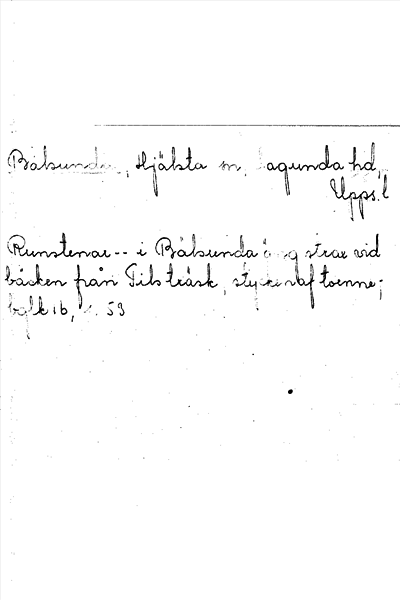 Bålsunda, Hjälsta sn, Lagunda hd,
Upps. l
Runstenar -- i Bålsunda äng strax vid
bäcken från Tibs träsk, stycken af tvenne;
1b, s. 59